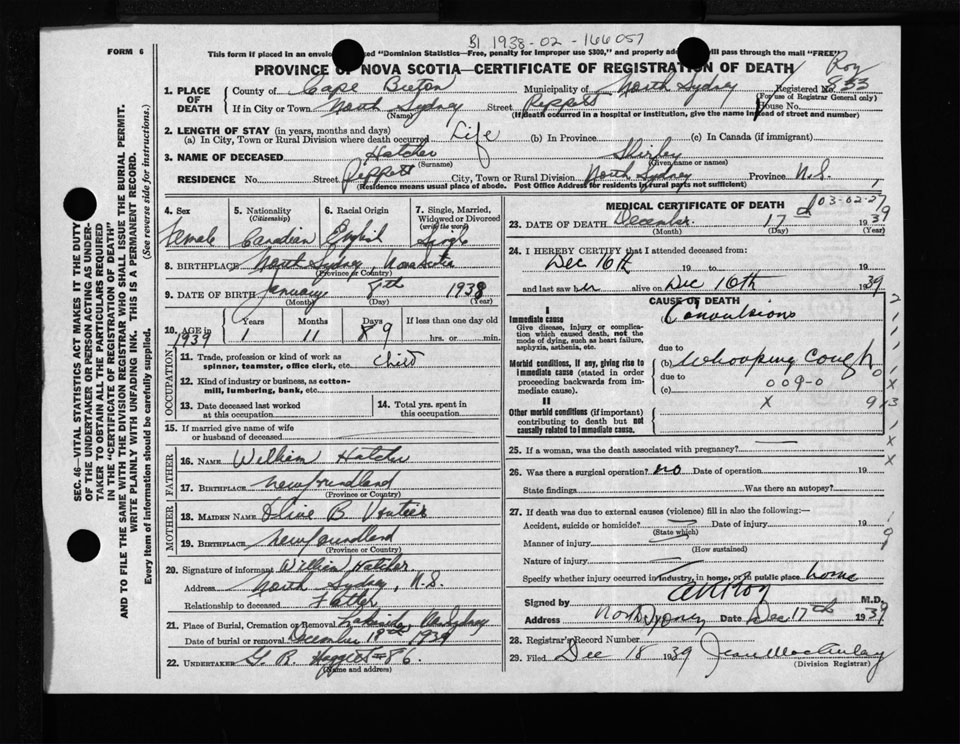 B1 1938-02-166057
FORM 6
This form if placed in an envelope "Dominion Statistics—Free, penalty for improper use $300," and properly will pass through the mail "FREE"
PROVINCE OF NOVA SCOTIA—CERTIFICATE OF REGISTRATION OF DEATH
Roy
1. PLACE OF DEATH County of Cape Breton Municipality of North Sydney Registered No. 853
(For use of Registrar General only)
If in City or Town North Sydney Street Peppett House No.
(Name) (If death occurred in a hospital or institution, give the name instead of street and number)
2. LENGTH OF STAY (in years, months and days)
(a) In City, Town or Rural Division where death occurred Life (b) In Province (c) In Canada (if immigrant)
3. NAME OF DECEASED Hatcher Shirley
(Surname) (Given name or names)
RESIDENCE No. Street Peppett City, Town or Rural Division North Sydney Province N.S.
(Residence means usual place of abode. Post Office Address for residents in rural parts not sufficient)
1
4. Sex 5. Nationality (Citizenship) 6. Racial Origin 7. Single, Married, Widowed or Divorced (write the word)
Female Canadian English Single
8. BIRTHPLACE North Sydney, Nova Scotia
(Province or Country)
9. DATE OF BIRTH January 8th 1938
(Month) (Day) (Year)
10. AGE IN Years Months Days If less than one day old
1939 1 11 89 hrs. or min.
OCCUPATION
11. Trade, profession or kind of work as spinner, teamster, office clerk, etc. Child
12. Kind of industry or business, as cotton-mill, lumbering, bank, etc.
13. Date deceased last worked at this occupation 14. Total yrs. spent in this occupation
15. If married give name of wife or husband of deceased
FATHER
16. NAME William Hatcher
17. BIRTHPLACE Newfoundland
(Province or Country)
MOTHER
18. MAIDEN NAME Olive B
19. BIRTHPLACE Newfoundland
(Province or Country)
20. Signature of informant William Hatcher
Address North Sydney, N.S.
Relationship to deceased Father
21. Place of Burial, Cremation or Removal Lakeside, North Sydney
Date of burial or removal December 19th 1939
22. UNDERTAKER G. R. #86.
(Name and address)
MEDICAL CERTIFICATE OF DEATH
03-02-27
23. DATE OF DEATH December 17th 1939
(Month) (Day) (Year)
24. I HEREBY CERTIFY that I attended deceased from:
Dec 16th 19 to 19
and last saw her alive on Dec 16th 1939
CAUSE OF DEATH
I
Immediate cause Convulsions
Give disease, injury or complication which caused death, not the mode of dying, such as heart failure, asphyxia, asthenia, etc.
due to
Morbid conditions, if any, giving rise to immediate cause (stated in order proceeding backwards from immediate cause). (b) Whooping Cough
due to 009-0
(c)
II
Other morbid conditions (if important) contributing to death but not causally related to immediate cause. X 9
25. If a woman, was the death associated with pregnancy?
26. Was there a surgical operation? no Date of operation 19
State findings Was there an autopsy?
27. If death was due to external causes (violence) fill in also the following:—
Accident, suicide or homicide? Date of injury 19
(State which)
Manner of injury
(How sustained)
Nature of injury
Specify whether injury occurred in industry, in home, or in public place home
Signed by M.D.
Address North Sydney Date Dec 17th 1939
28. Registrar's Record Number
29. Filed Dec 18 1939 Jean MacAulay
(Division Registrar)
SEC. 46—VITAL STATISTICS ACT MAKES IT THE DUTY OF THE UNDERTAKER OR PERSON ACTING AS UNDERTAKER TO OBTAIN ALL THE PARTICULARS REQUIRED IN THE "CERTIFICATE OF REGISTRATION OF DEATH"
AND TO FILE THE SAME WITH THE DIVISION REGISTRAR WHO SHALL ISSUE THE BURIAL PERMIT.
WRITE PLAINLY WITH UNFADING INK. THIS IS A PERMANENT RECORD.
Every item of information should be carefully supplied. (See reverse side for instructions.)